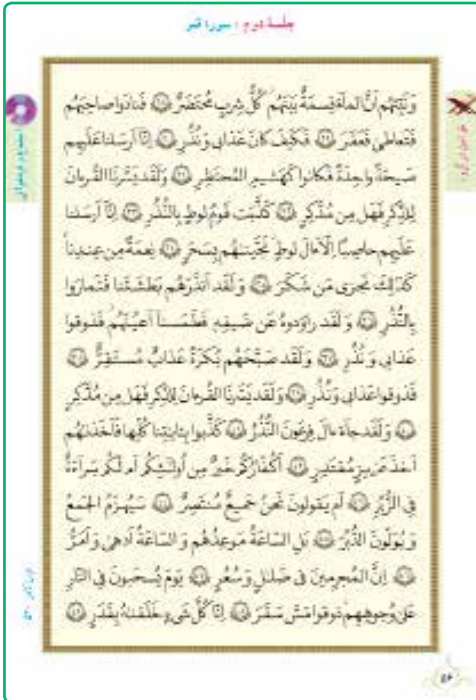 جلسهٔ دوم : سورهٔ قمر
وَنَبِّئهُم اَنَّ الماءَ قِسمَةٌ بَينَهُم كُلُّ شِربٍ مُحتَضَرٌ ۲۸ فَنادَوا صاحِبَهُم
فَتَعاطى فَعَقَرَ ۲۹ فَكَيفَ كانَ عَذابى وَنُذُرِ ۳۰ اِنّا اَرسَلنا عَلَيهِم
صَيحَةً واحِدَةً فَكانوا كَهَشيمِ المُحتَظِرِ ۳۱ وَلَقَد يَسَّرنَا القُرءانَ
لِلذِّكرِ فَهَل مِن مُدَّكِرٍ ۳۲ كَذَّبَت قَومُ لوطٍ بِالنُّذُرِ ۳۳ اِنّا اَرسَلنا
عَلَيهِم حاصِبًا اِلّا ءالَ لوطٍ نَجَّيناهُم بِسَحَرٍ ۳۴ نِعمَةً مِن عِندِنا
كَذلِكَ نَجزى مَن شَكَرَ ۳۵ وَلَقَد اَنذَرَهُم بَطشَتَنا فَتَمارَوا
بِالنُّذُرِ ۳۶ وَلَقَد راوَدوهُ عَن ضَيفِهِ فَطَمَسنا اَعيُنَهُم فَذوقوا
عَذابى وَنُذُرِ ۳۷ وَلَقَد صَبَّحَهُم بُكرَةً عَذابٌ مُستَقِرٌّ ۳۸
فَذوقوا عَذابى وَنُذُرِ ۳۹ وَلَقَد يَسَّرنَا القُرءانَ لِلذِّكرِ فَهَل مِن مُدَّكِرٍ
۴۰ وَلَقَد جاءَ ءالَ فِرعَونَ النُّذُرُ ۴۱ كَذَّبوا بِئايٰتِنا كُلِّها فَاَخَذناهُم
اَخذَ عَزيزٍ مُقتَدِرٍ ۴۲ اَكُفّارُكُم خَيرٌ مِن اُولٰئِكُم اَم لَكُم بَراءَةٌ
فِى الزُّبُرِ ۴۳ اَم يَقولونَ نَحنُ جَميعٌ مُنتَصِرٌ ۴۴ سَيُهزَمُ الجَمعُ
وَيُوَلّونَ الدُّبُرَ ۴۵ بَلِ السّاعَةُ مَوعِدُهُم وَالسّاعَةُ اَدهى وَاَمَرُّ
۴۶ اِنَّ المُجرِمينَ فى ضَلالٍ وَسُعُرٍ ۴۷ يَومَ يُسحَبونَ فِى النّارِ
عَلى وُجوهِهِم ذوقوا مَسَّ سَقَرَ ۴۸ اِنّا كُلَّ شَىءٍ خَلَقناهُ بِقَدَرٍ ۴۹
۵۶